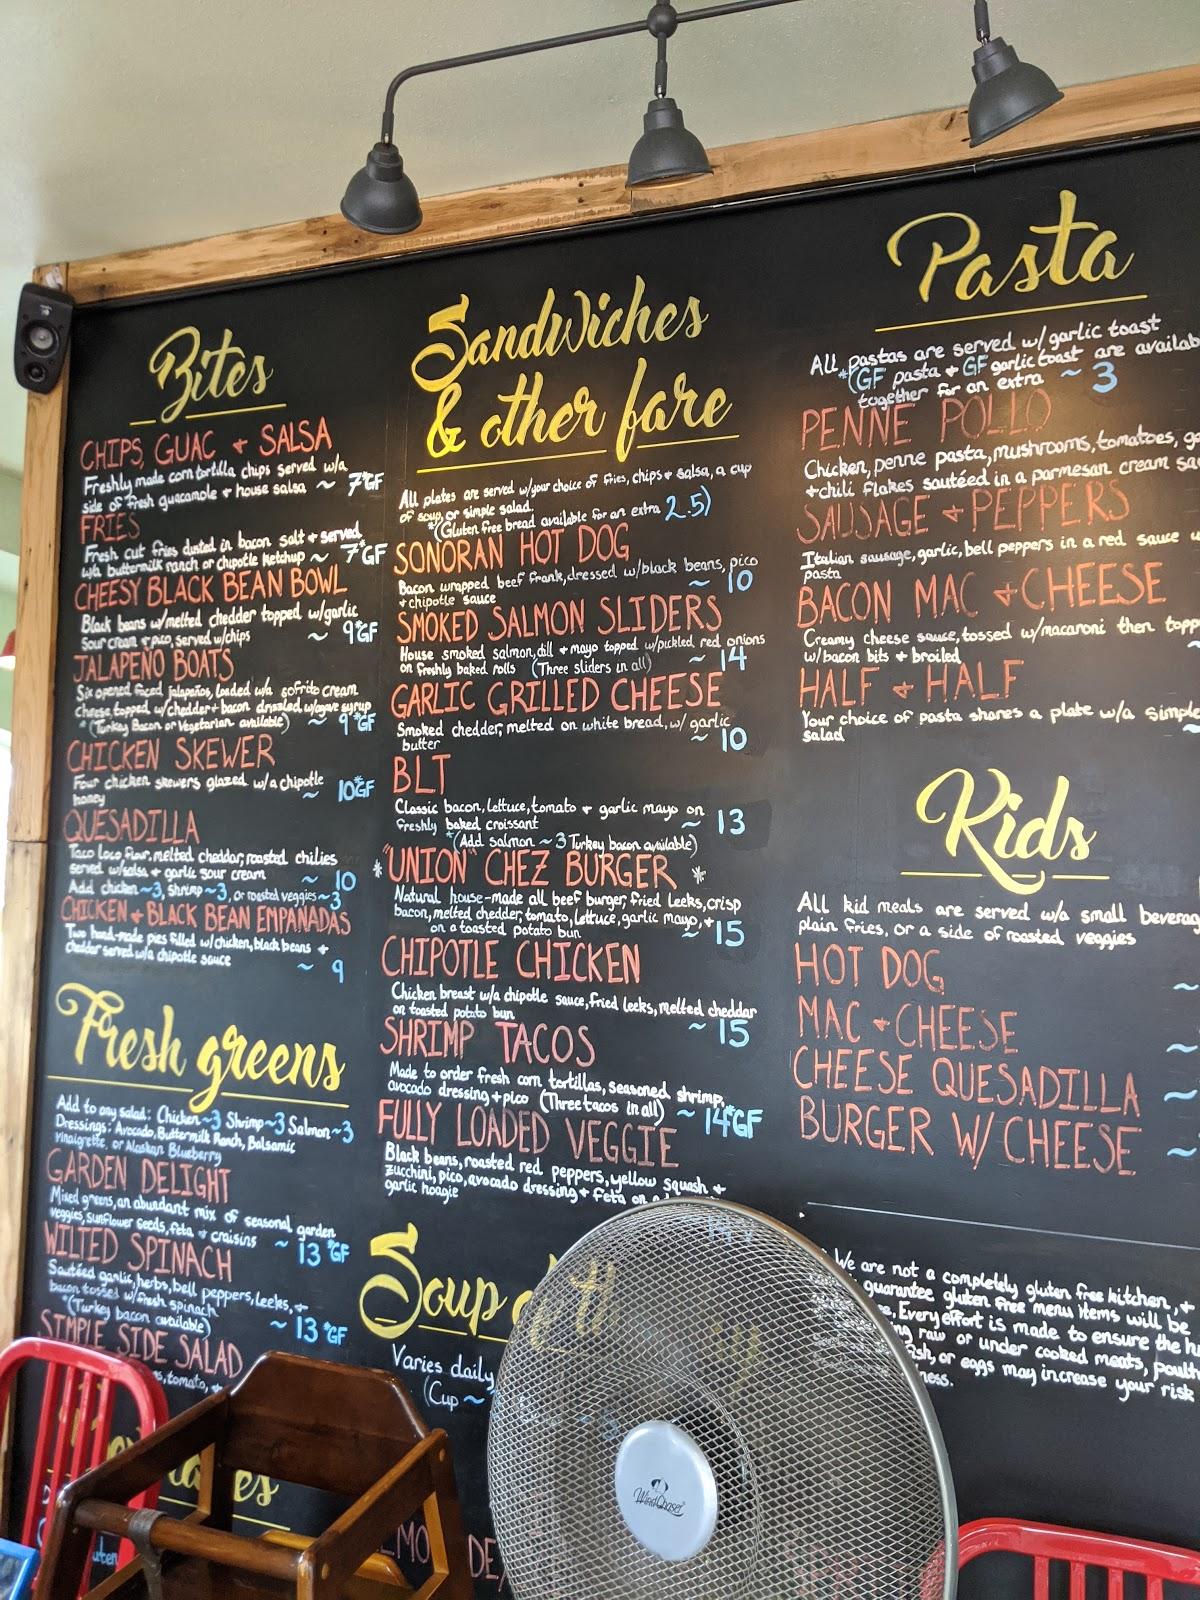 Bites
CHIPS, GUAC + SALSA
Freshly made corn tortilla chips served w/a
side of fresh guacamole + house salsa ~ 7*GF
FRIES
Fresh cut fries dusted in bacon salt + served
w/a buttermilk ranch or chipotle ketchup ~ 7*GF
CHEESY BLACK BEAN BOWL
Black beans w/melted chedder topped w/garlic
Sour cream + pico, served w/chips ~ 9*GF
JALAPEÑO BOATS
Six opened faced jalapeños, loaded w/a sofrito cream
cheese, topped w/chedder + bacon drizzled w/agave syrup
(Turkey Bacon or Vegetarian available) ~ 9*GF
CHICKEN SKEWER
Four chicken skewers glazed w/a chipotle
honey ~ 10*GF
QUESADILLA
Taco loco flour, melted cheddar, roasted chilies
served w/salsa + garlic sour cream ~ 10
Add chicken ~3, shrimp ~3, or roasted veggies ~3
CHICKEN + BLACK BEAN EMPANADAS
Two hand-made pies filled w/chicken, black beans +
cheddar served w/a chipotle sauce ~ 9
Fresh greens
Add to any salad: Chicken ~3 Shrimp ~3 Salmon ~3
Dressings: Avocado, Buttermilk Ranch, Balsamic
Vinaigrette, or Alaskan Blueberry
GARDEN DELIGHT
Mixed greens, an abundant mix of seasonal garden
veggies, sunflower seeds, feta + craisins ~ 13 *GF
WILTED SPINACH
Sautéed garlic, herbs, bell peppers, leeks, +
bacon tossed w/fresh spinach
*(Turkey bacon available) ~ 13 *GF
SIMPLE SIDE SALAD
tomato, +
Sandwiches
& other fare
All plates are served w/your choice of fries, chips + salsa, a cup
of soup, or simple salad.
*(Gluten free bread available for an extra 2.5)
SONORAN HOT DOG
Bacon wrapped beef frank, dressed w/black beans, pico
+ chipotle sauce ~ 10
SMOKED SALMON SLIDERS
House smoked salmon, dill + mayo topped w/pickled red onions
on freshly baked rolls (Three sliders in all) ~ 14
GARLIC GRILLED CHEESE
Smoked chedder, melted on white bread, w/ garlic
butter ~ 10
BLT
Classic bacon, lettuce, tomato + garlic mayo on
freshly baked croissant ~ 13
*(Add salmon ~ 3 Turkey bacon available)
*"UNION" CHEZ BURGER *
Natural house-made all beef burger, fried leeks, crisp
bacon, melted chedder, tomato, lettuce, garlic mayo, +
on a toasted potato bun ~ 15
CHIPOTLE CHICKEN
Chicken breast w/a chipotle sauce, fried leeks, melted cheddar
on toasted potato bun ~ 15
SHRIMP TACOS
Made to order fresh corn tortillas, seasoned shrimp,
avocado dressing + pico (Three tacos in all) ~ 14*GF
FULLY LOADED VEGGIE
Black beans, roasted red peppers, yellow squash +
zucchini, pico, avocado dressing + feta on a
garlic hoagie
Soup
Varies daily
(Cup ~
Pasta
All pastas are served w/garlic toast
*(GF pasta + GF garlic toast are availab
together for an extra ~ 3
PENNE POLLO
Chicken, penne pasta, mushrooms, tomatoes, ga
+ chili flakes sautéed in a parmesan cream sau
SAUSAGE + PEPPERS
Italian sausage, garlic, bell peppers in a red sauce w
pasta
BACON MAC + CHEESE
Creamy cheese sauce, tossed w/macaroni then topp
w/bacon bits + broiled ~
HALF + HALF
Your choice of pasta shares a plate w/a simple
salad ~
Kids
All kid meals are served w/a small beverag
plain fries, or a side of roasted veggies
HOT DOG ~
MAC + CHEESE ~
CHEESE QUESADILLA ~
BURGER W/ CHEESE ~
We are not a completely gluten free kitchen, +
guarantee gluten free menu items will be
Every effort is made to ensure the
raw or under cooked meats, poult
fish, or eggs may increase your risk
ness.
WindChaser